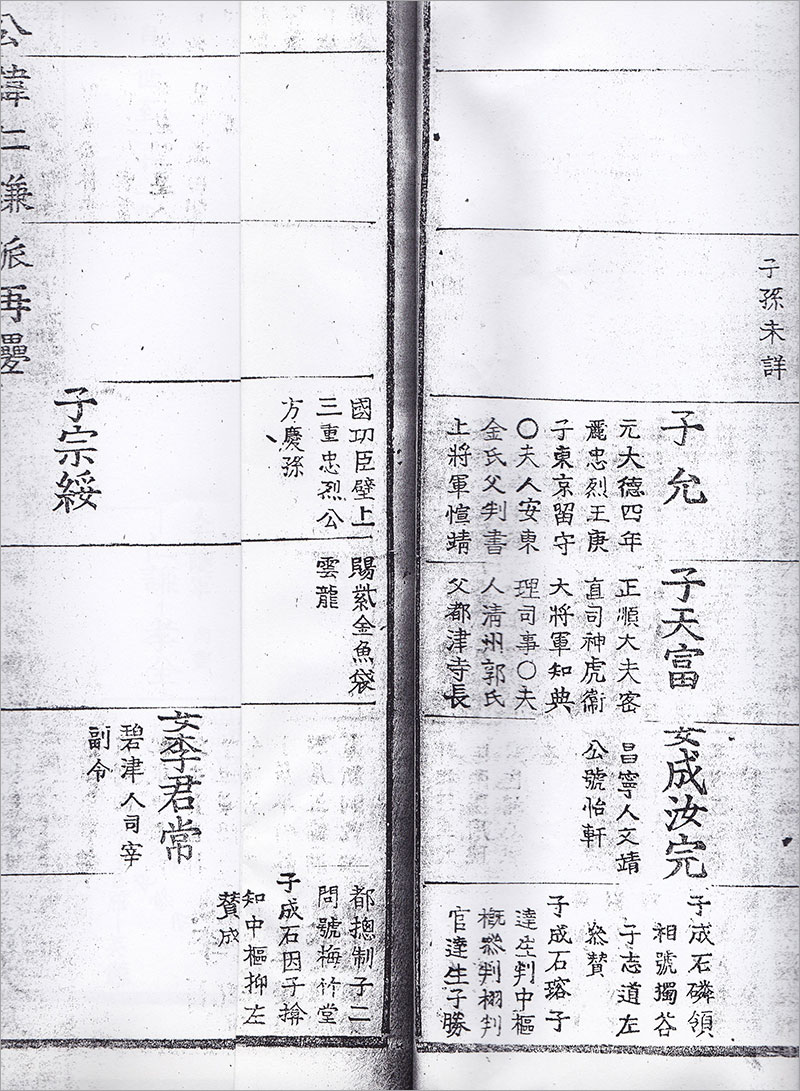 子孫未詳
子允
元大德四年
麗忠烈王庚
子東京留守
〇夫人安東
金氏父判書
上將軍愃靖
國功臣壁上
三重忠烈公
方慶孫
子宗綏
子天富
正順大夫客
直司神虎衛
大將軍知典
理司事〇夫
人清州郭氏
父都津寺長
賜紫金魚袋
雲龍
女成汝完
昌寧人文靖
公號怡軒
女李君常
碧津人司宰
副令
子成石磷領
相號獨谷
子志道左
叅賛
子成石瑢子
達生判中樞
概叅判栩判
官達生子勝
都摠制子二
問號梅竹堂
子成石因子揜
知中樞抑左
賛成
公諱仁謙派再疊